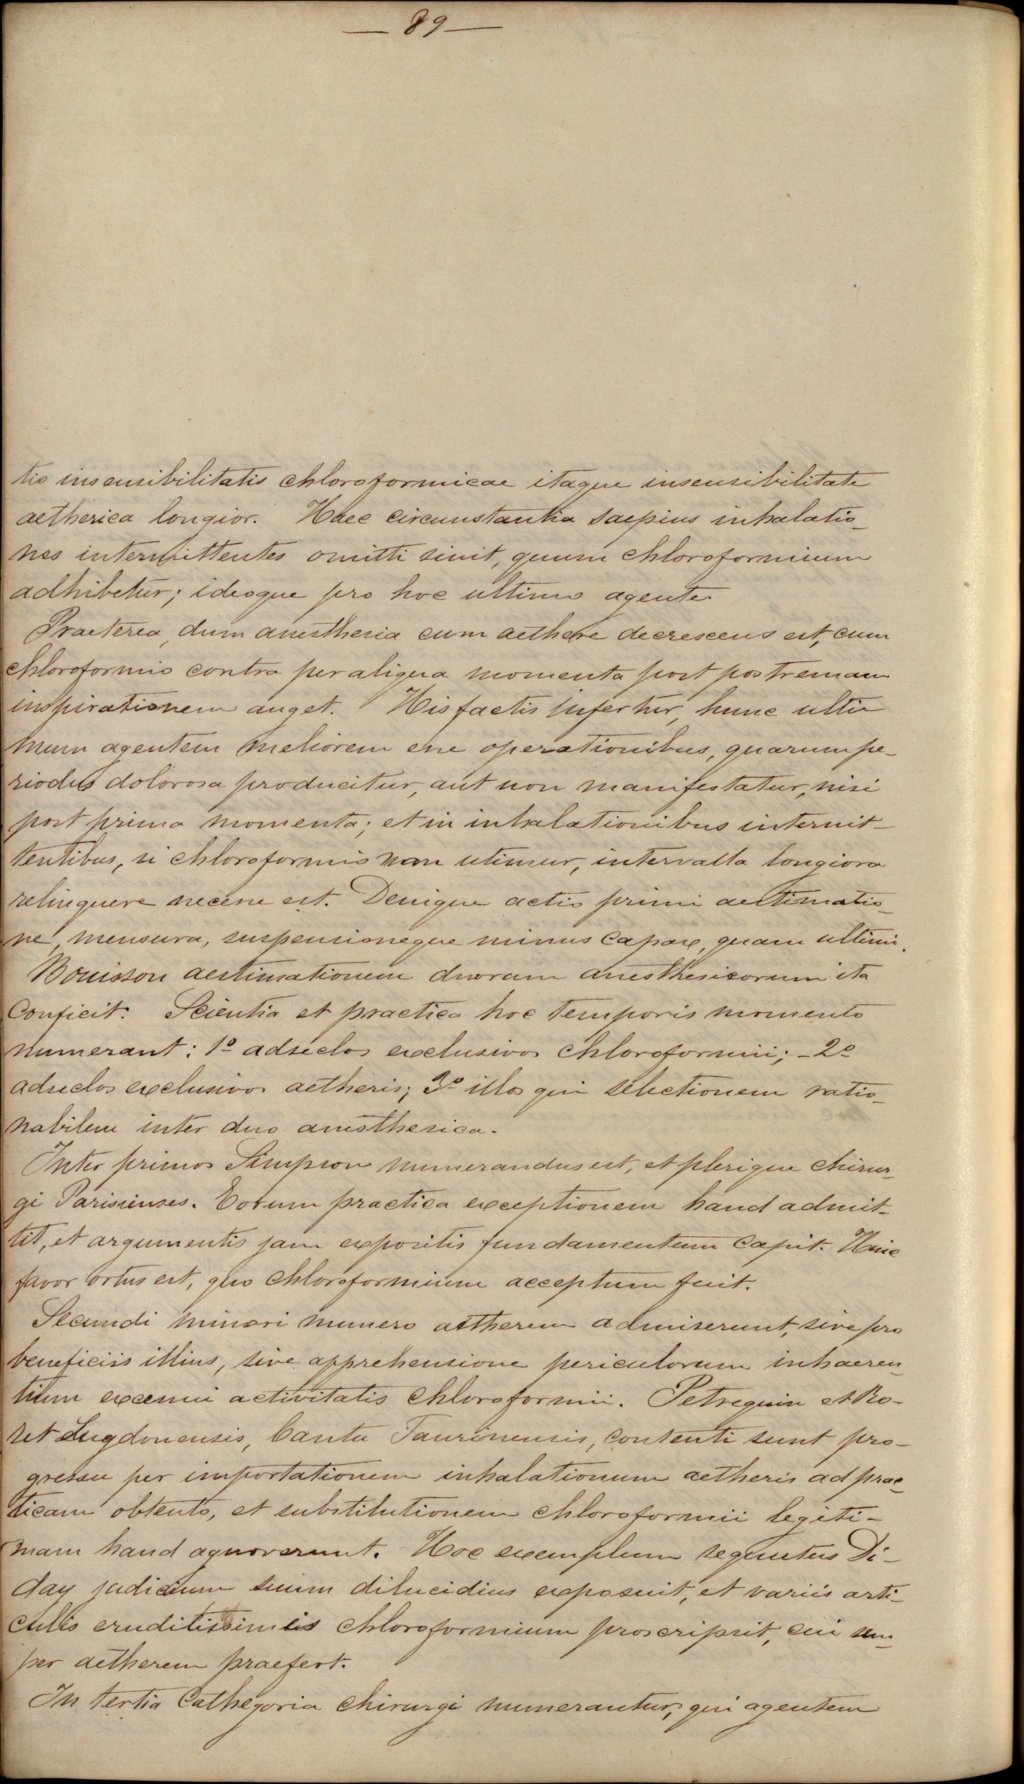 — 89 —
tio insensibilitatis chloroformicae itaque insensibilitate
aetherica longior. Haec circunstantia saepius inhalatio-
nes intermittentes omitti sinit, quum chloroformium
adhibetur; ideoque pro hoc ultimo agente
Praeterea, dum anesthesia cum aethere decrescens est, cum
chloroformio contra per aliqua momenta post postremam
inspirationem auget. His factis infertur, hunc ulti
mum agentem meliorem esse operationibus, quarum pe-
riodus dolorosa producitur, aut non manifestatur, nisi
post prima momenta; et in inhalationibus intermit-
tentibus, si chloroformio non utimur, intervalla longiora
relinquere necesse est. Denique actio primi aestimatio-
ne, mensura, suspensioneque minus capax, quam ultimi.
Bouisson aestimationem duorum anesthesicorum ita
conficit. Scientia et practica hoc temporis momento
numerant: 1º adseclos exclusivos chloroformii; - 2º
adseclos exclusivos aetheris; 3º illos qui selectionem ratio-
nabilem inter duo anesthesica.
Inter primos Simpson numerandus est, et plerique chirur-
gi Parisienses. Eorum practica exceptionem haud admit-
tit, et argumentis jam expositis fundamentum capit. Huic
favor ortus est, quo chloroformium acceptum fuit.
Secundi minori numero aetherem admiserunt, sive pro
beneficiis illius, sive apprehensione periculorum inhaeren-
tium eximii activitatis chloroformii. Petrequin et Bo-
ret Lugdonensis, Cantu Taurinensis, contenti sunt pro-
gressu per importationem inhalationum aetheris ad prac-
ticam obtento, et substitutionem chloroformii legiti-
mam haud agnoverunt. Hoc exemplum sequutus Di-
day judicium suum dilucidius exposuit, et variis arti-
culis eruditissimis chloroformium proscripsit, cui sem-
per aetherem praefert.
In tertia cathegoria chirurgi numerantur, qui agentem